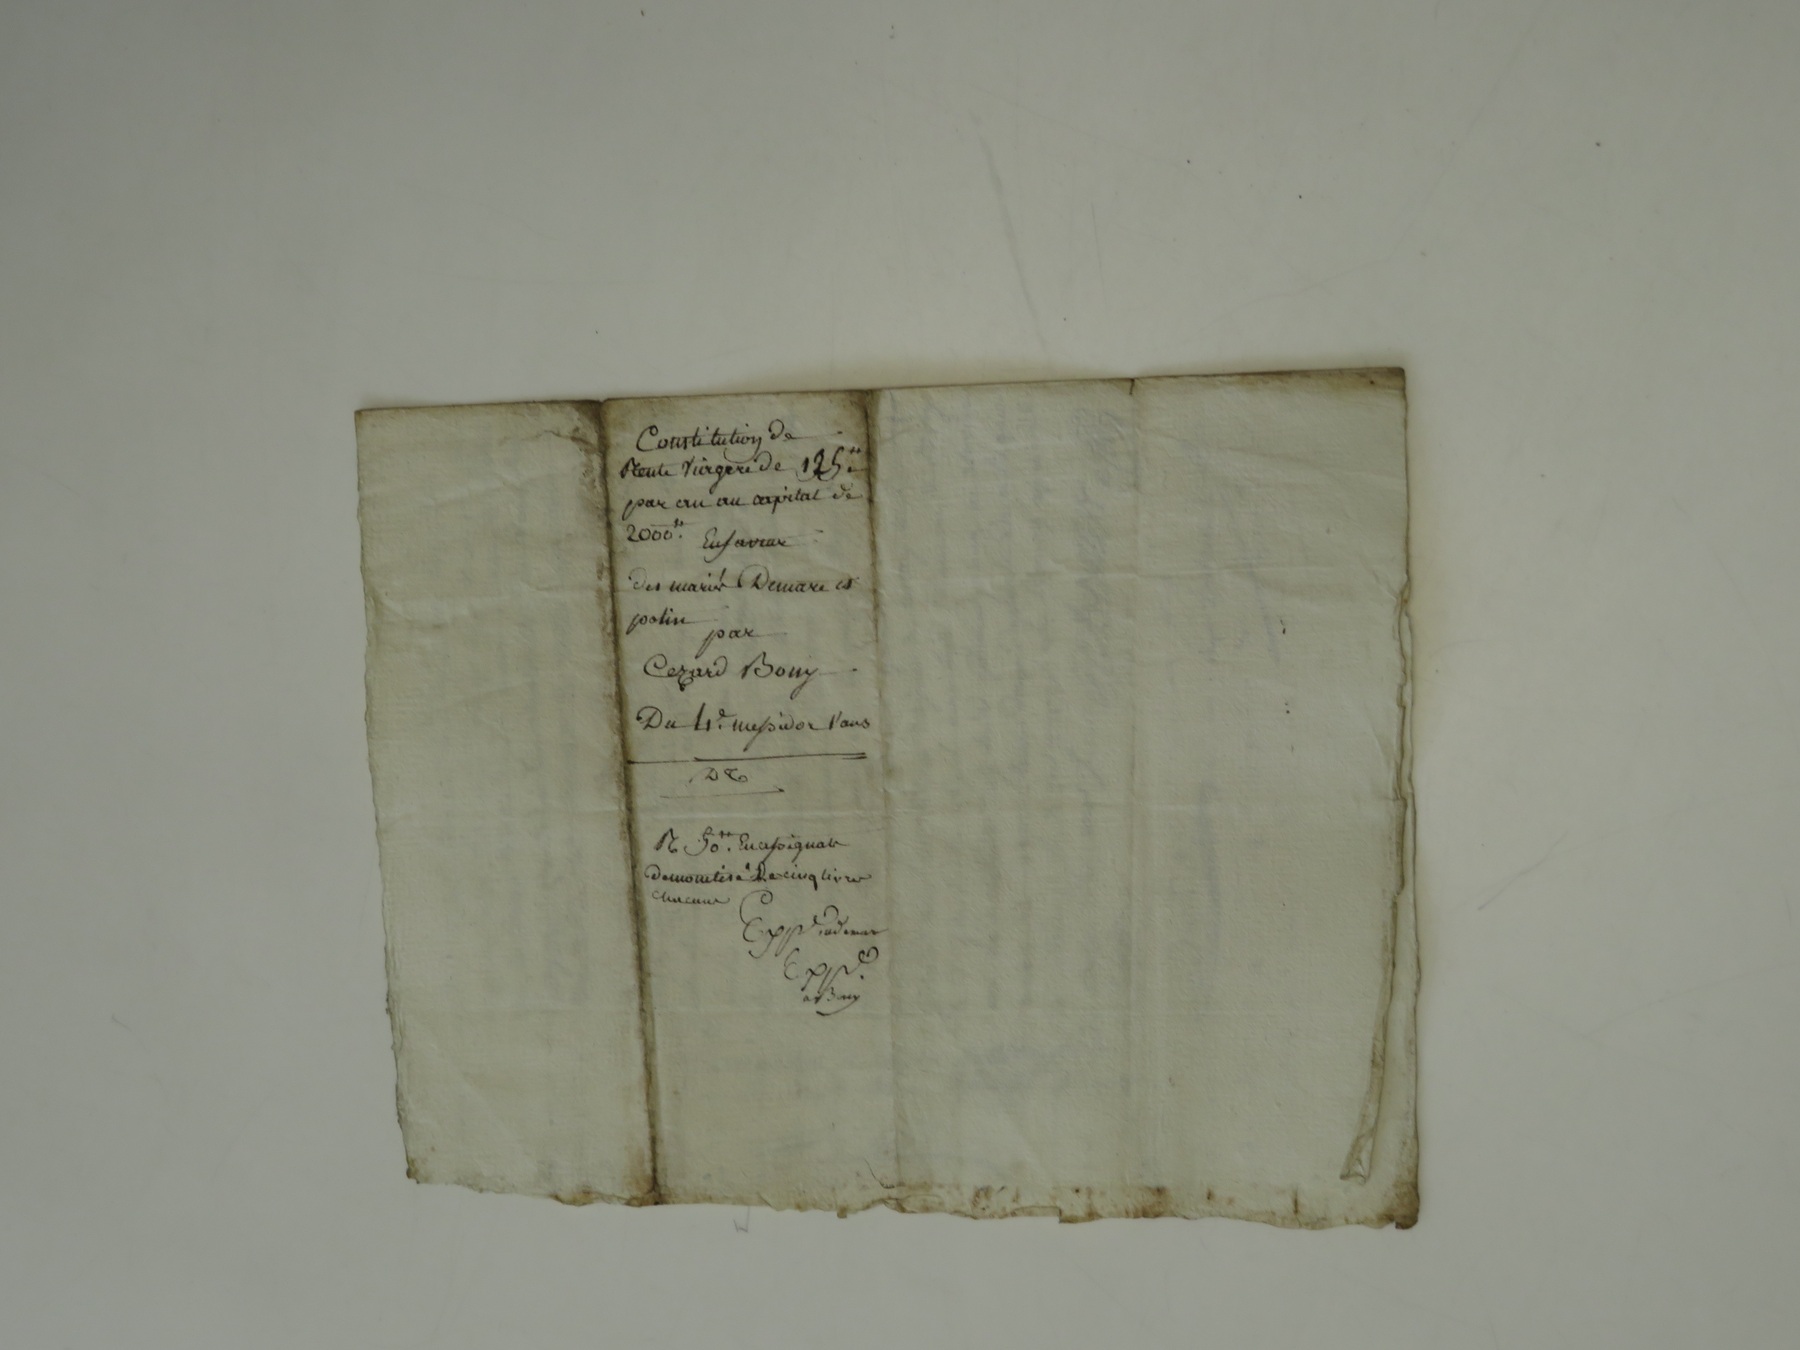 Constitution de
Rente Viagere de 125 ₶
par an au capital de
2000 ₶. En faveur
des mariés Demare et
potin
par
Cezard Bouy
Du 4e. messidor l'an 3
R 50 ₶. En assignats
demonetisé De cinq livres
chacune
Expp.é
Expp.é
a Bouy